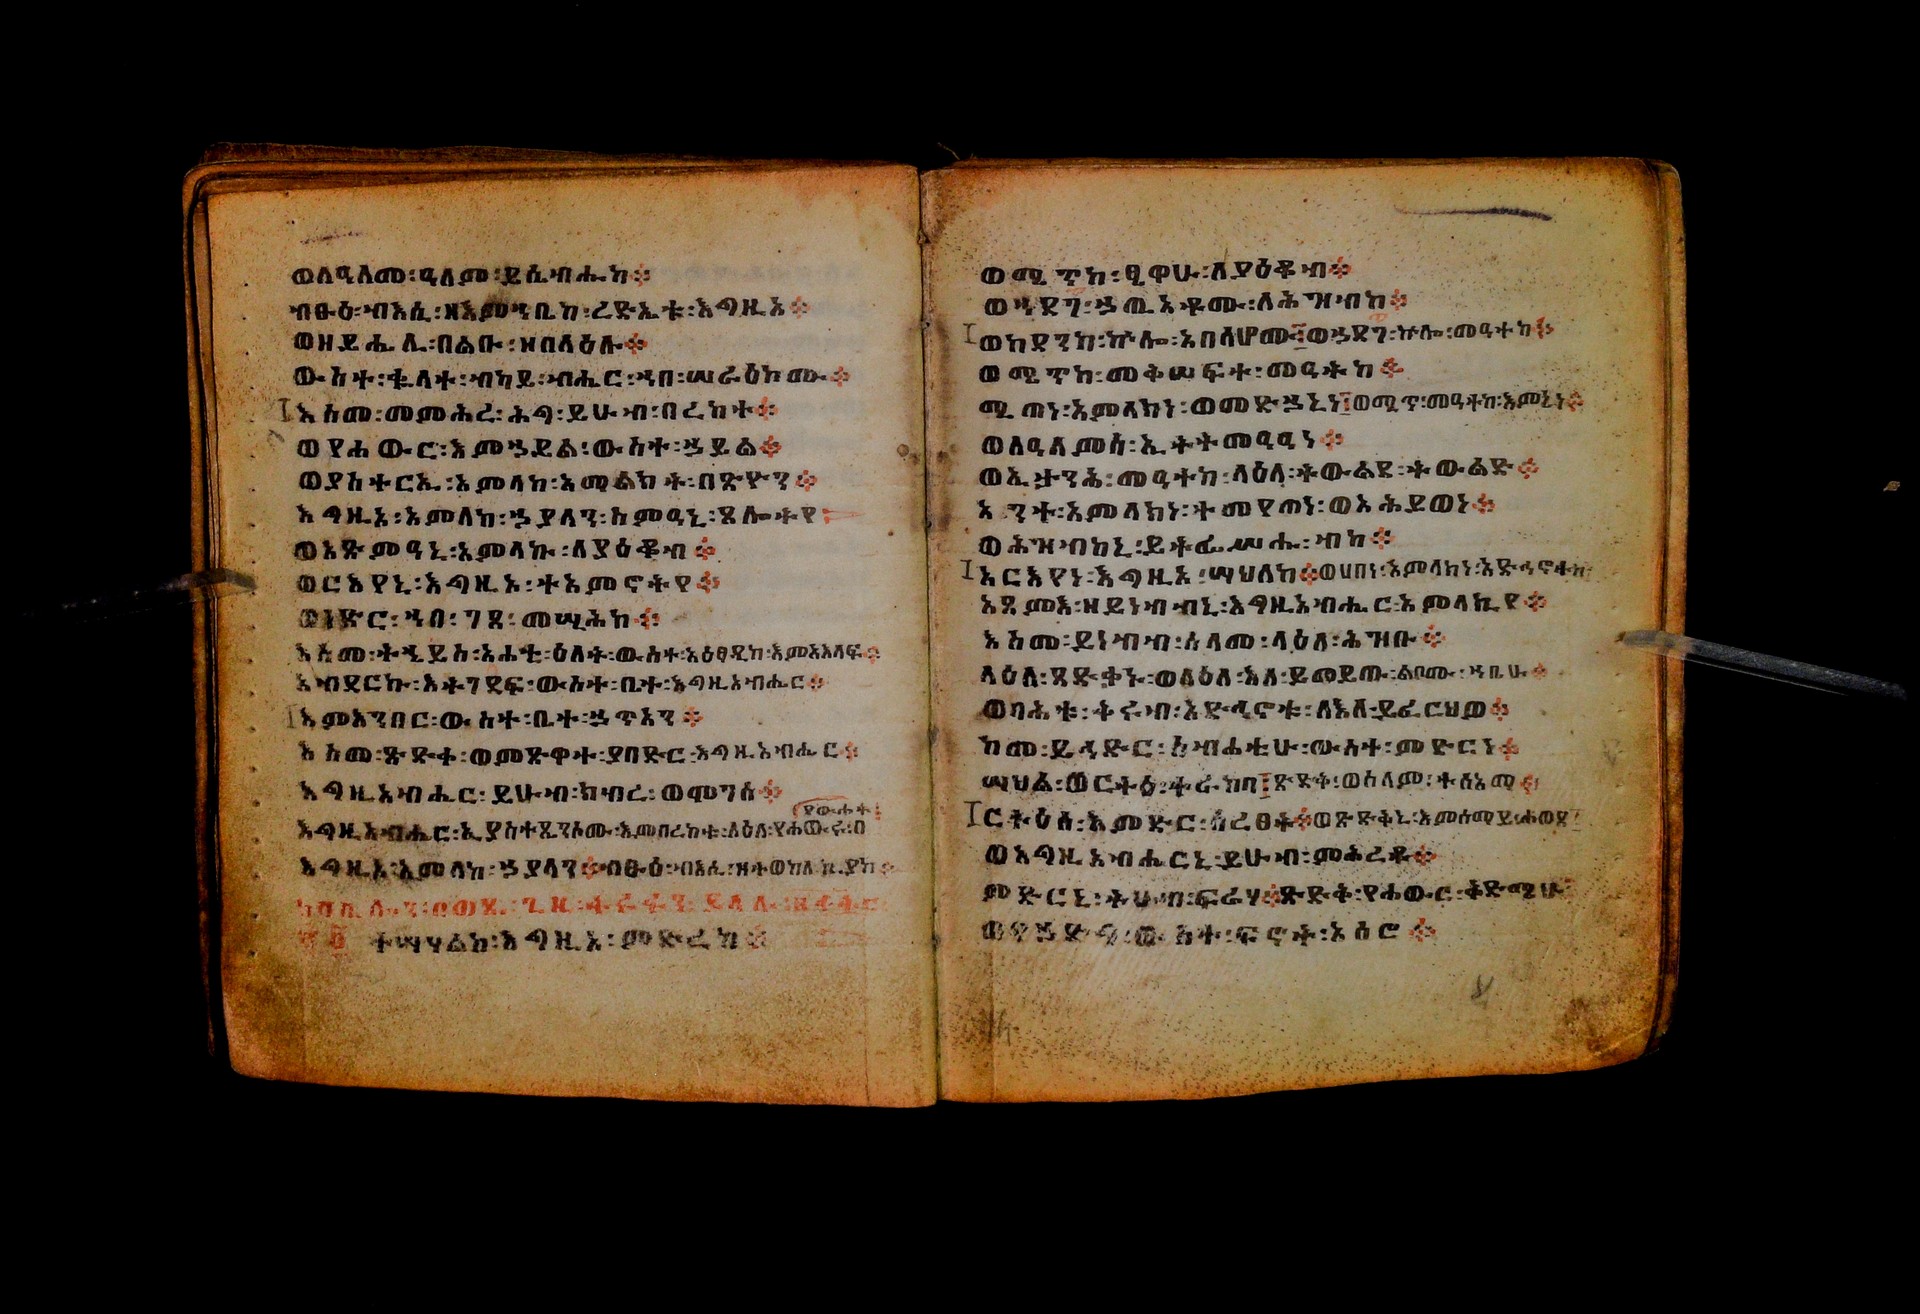 ወለዓለመ፡ዓለም፡ይሴብሑከ፨
ብፁዕ፡ብእሲ፡ዘእምኀቤከ፡ረድኤቱ፡እግዚኦ፨
ወዘይሔሊ፡በልቡ፡ዘበላዕሉ፨
ውስተ፡ቈላተ፡ብካይ፡ብሔር፡ኀበ፡ሠራዕከሙ፨
እስመ፡መምሕረ፡ሕግ፡ይሁብ፡በረከተ፨
ወየሐውር፡እምኃይል፡ውስተ፡ኃይል፨
ወያስተርኢ፡አምላከ፡አማልክት፡በጽዮን፨
እግዚኦ፡አምላከ፡ኃያላን፡ስምዓኒ፡ጸሎትየ
ወአጽምዓኒ፡አምላኩ፡ለያዕቆብ፨
ወርእየኒ፡እግዚኦ፡ተአምኖትየ፨
ወነጽር፡ኀበ፡ገጸ፡መሢሕከ፨
እስመ፡ትኄይስ፡አሐቲ፡ዕለት፡ውስተ፡አዕፀዲከ፡እምአእላፍ፨
አብደርኩ፡እትገደፍ፡ውስተ፡ቤተ፡እግዚአብሔር፨
እምእንበር፡ውስተ፡ቤተ፡ኃጥአን፨
እስመ፡ጽድቀ፡ወምጽዋተ፡ያበድር፡እግዚአብሔር፨
እግዚአብሔር፡ይሁብ፡ክብረ፡ወሞገሰ፨
የውሐት፡
እግዚአብሔር፡ኢያስተጼንሶሙ፡እምበረከቱ፡ለእለ፡የሐውሩ፡በ
እግዚኦ፡አምላከ፡ኃያላን፨ብፁዕ፡ብእሲ፡ዘተወከለ፡ኪያከ፨
ተሣሃልከ፡እግዚኦ፡ምድረከ፨
ወሚጥከ፡ፄዋሁ፡ለያዕቆብ፨
ወኀደገ፡ኃጢአቶሙ፡ለሕዝብከ፨
ወከደንከ፡ኵሎ፡አበሳሆሙ፨ወኃደገ፡ኵሎ፡መዓተከ፨
ወሚጥከ፡መቅሠፍተ፡መዓትከ፨
ሚጠነ፡አምላክነ፡ወመድኃኒነ፨ወሚጥ፡መዓትከ፡እምኔነ፨
ወለዓለምሰ፡ኢትትመዓዓነ፨
ወኢታንሕ፡መዓተከ፡ላዕለ፡ትውልደ፡ትውልድ፨
አንተ፡አምላክነ፡ተመየጠነ፡ወአሕይወነ፨
ወሕዝብከኒ፡ይትፌሥሑ፡ብከ፨
አርእየነ፡እግዚኦ፡ሣህለከ፨ወሀበነ፡አምላክነ፡አድኅኖተከ፨
አጸምእ፡ዘይነብበኒ፡እግዚአብሔር፡አምላኪየ፨
እስመ፡ይነብብ፡ሰላመ፡ላዕለ፡ሕዝቡ፨
ላዕለ፡ጻድቃኑ፡ወላዕለ፡እለ፡ይመይጡ፡ልቦሙ፡ኀቤሁ፨
ወባሕቱ፡ቅሩብ፡አድኅኖቱ፡ለእለ፡ይፈርህዎ፨
ከመ፡ይኅድር፡ስብሐቲሁ፡ውስተ፡ምድርነ፨
ሣህል፡ወርትዕ፡ተራከባ፨ጽድቅ፡ወሰላም፡ተሰአማ፨
ርትዕሰ፡እምድር፡ሰረፀት፨ወጽድቅኒ፡እምሰማይ፡ሐወጸ፨
ወእግዚአብሔርኒ፡ይሁብ፡ምሕረቶ፨
ምድርኒ፡ትሁብ፡ፍሬሃ፨ጽድቅ፡የሐውር፡ቅድሜሁ፨
ወየኃድግ፡ውስተ፡ፍኖት፡አሰሮ፨